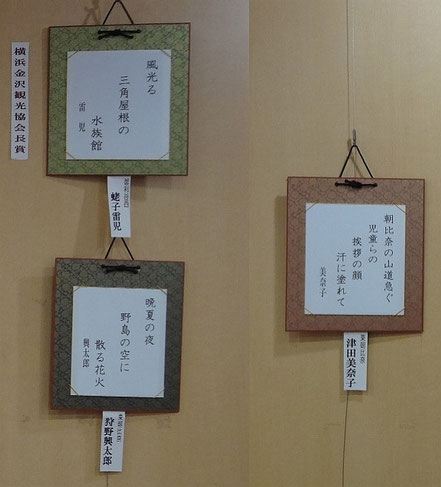 横浜金沢観光協会長賞
風光る
三角屋根の
水族館
雷児
蛯子雷児
晩夏の夜
野島の空に
散る花火
興太郎
狩野興太郎
朝比奈の山道急ぐ
児童らの
挨拶の顔
汗に塗れて
美奈子
津田美奈子